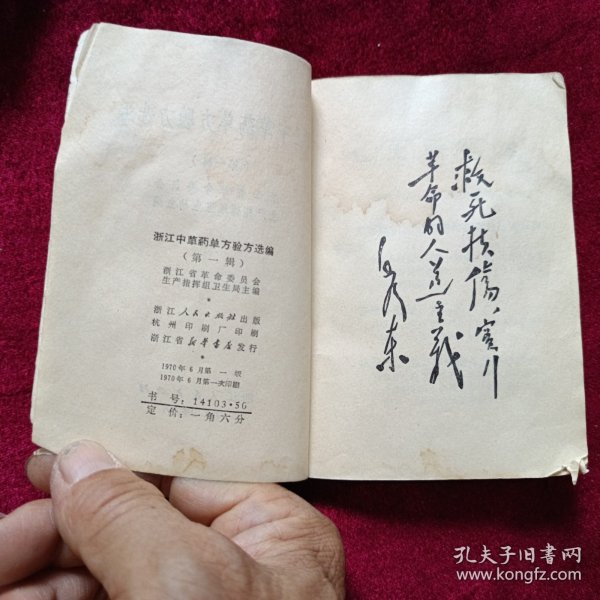 浙江中草药单方验方选编
（第一辑）
浙江省革命委员会
生产指挥组卫生局主编
浙江人民出版社出版
杭州印刷厂印刷
浙江省新华书店发行
1970年6月第一版
1970年6月第一次印刷
书号：14103·50
定价：一角六分
救死扶傷，实行
革命的人道主義
毛泽东
孔夫子旧书网
www.kongfz.com